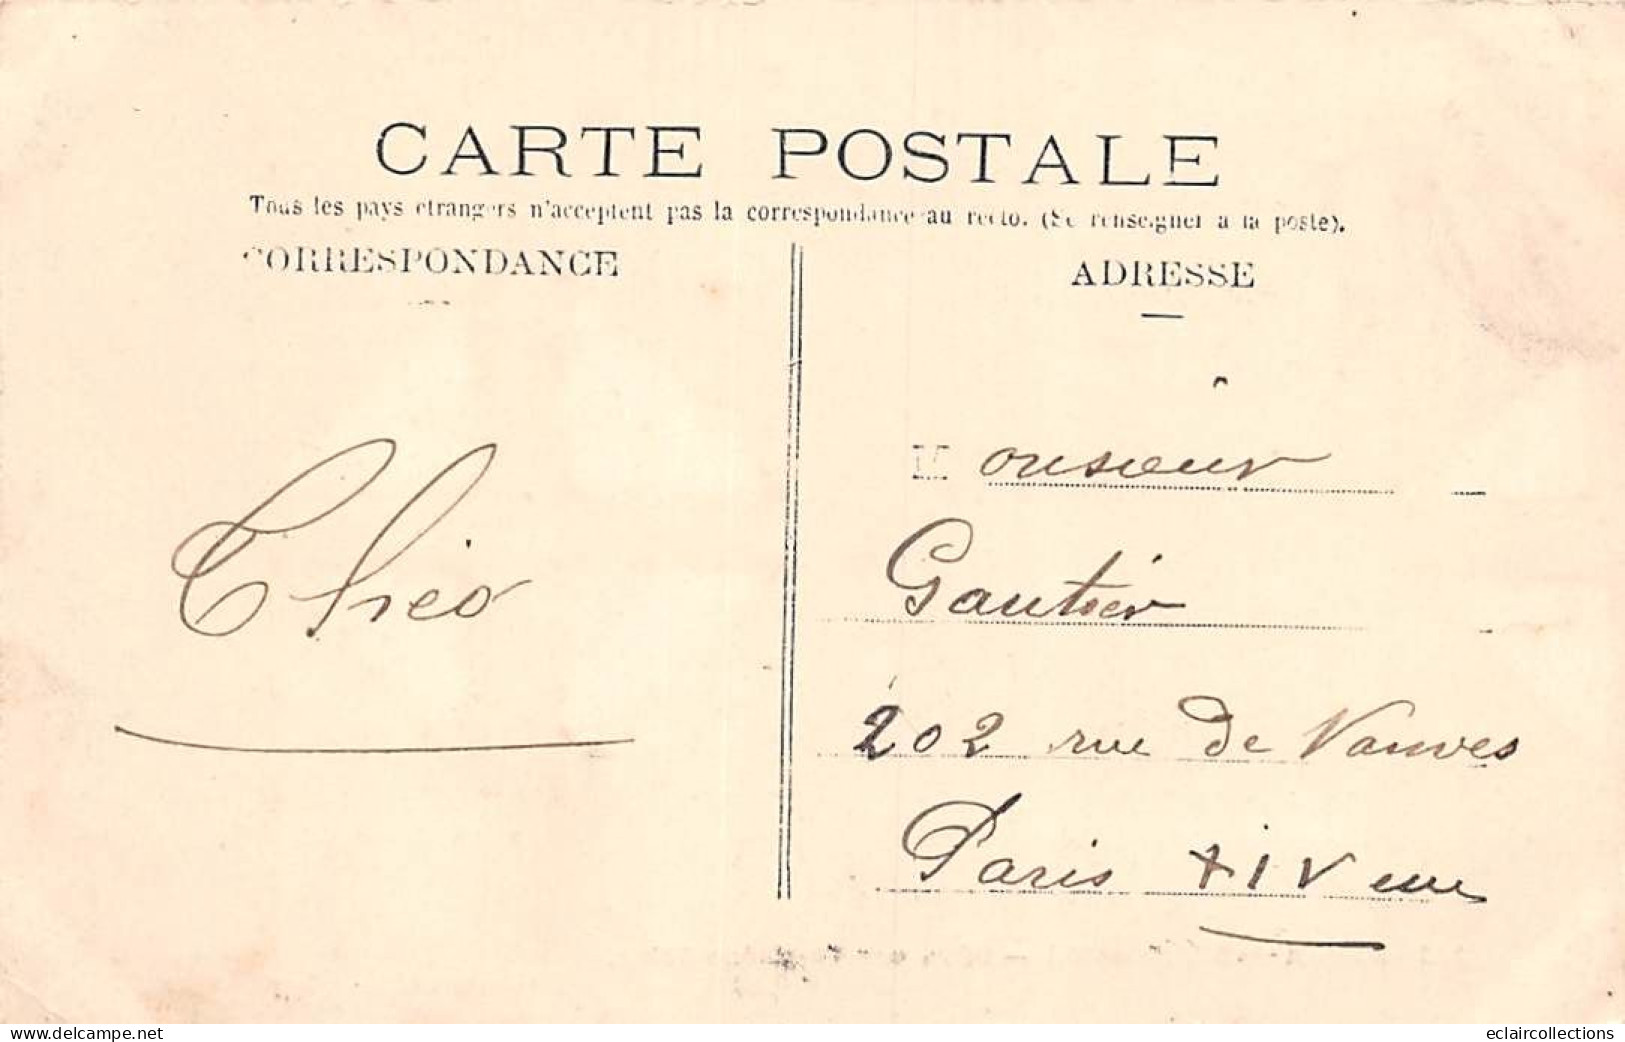 CARTE POSTALE
Tous les pays étrangers n'acceptent pas la correspondance au recto. (Se renseigner à la poste).
CORRESPONDANCE
ADRESSE
Monsieur
Gautier
202 rue de Vanves
Paris XIV eme
Théo
www.delcampe.net
eclaircollections